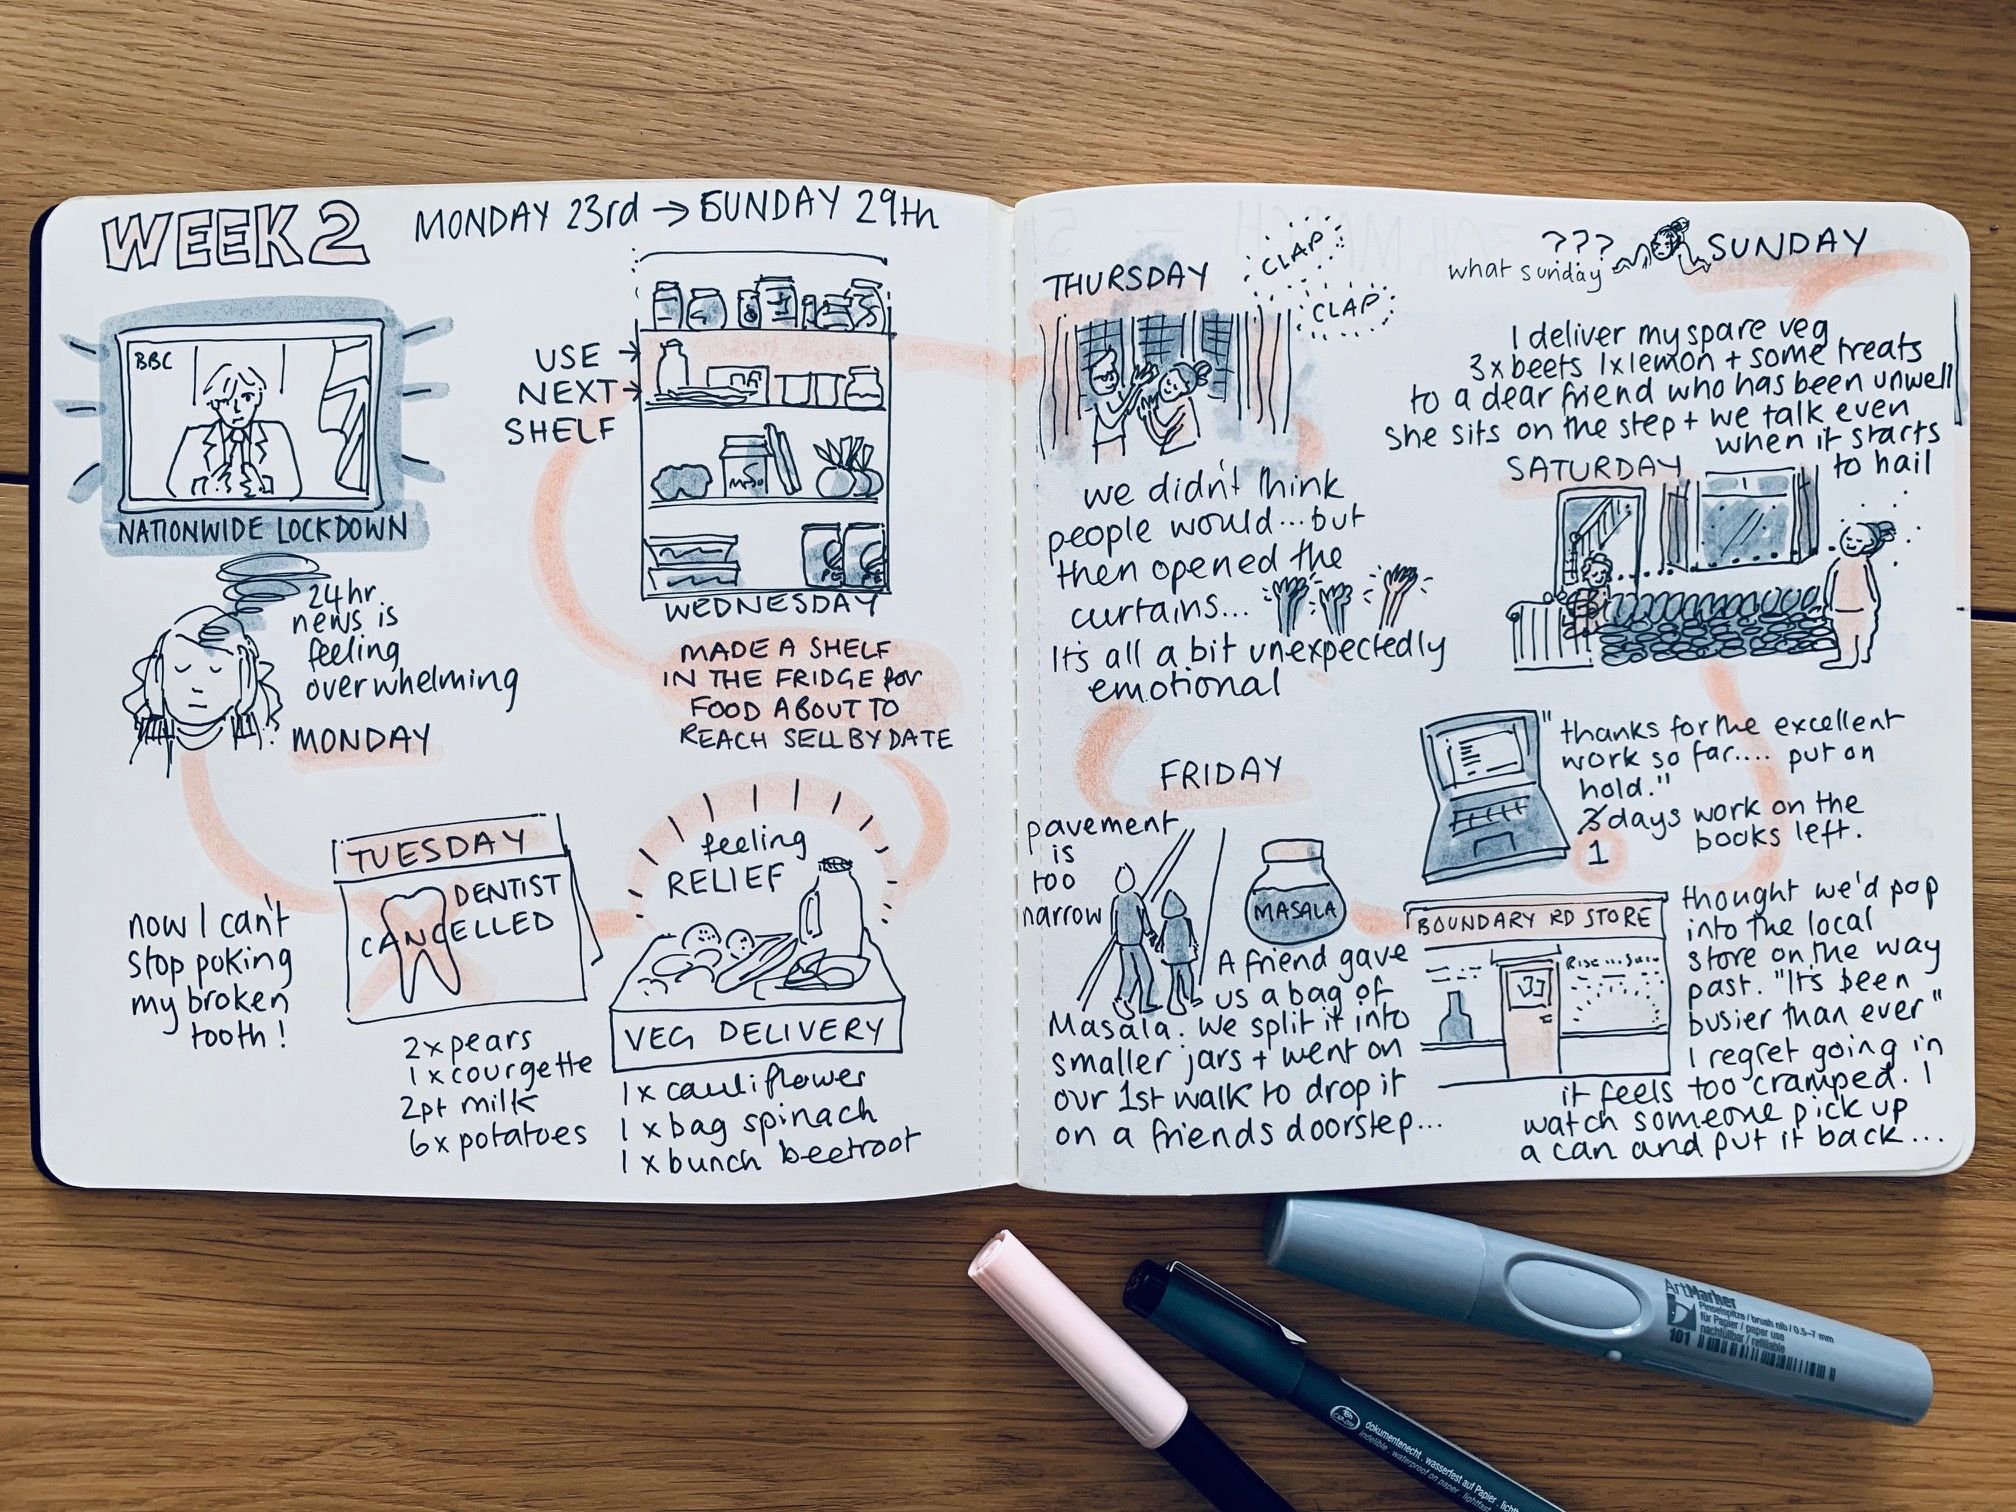 WEEK 2
MONDAY 23rd → SUNDAY 29th
BBC
NATIONWIDE LOCKDOWN
24hr
news is
feeling
overwhelming
MONDAY
TUESDAY
DENTIST
CANCELLED
now I can't
stop poking
my broken
tooth!
feeling
RELIEF
VEG DELIVERY
2 x pears
1 x courgette
2pt milk
6 x potatoes
1 x cauliflower
1 x bag spinach
1 x bunch beetroot
USE →
NEXT →
SHELF
MISO
WEDNESDAY
MADE A SHELF
IN THE FRIDGE for
FOOD ABOUT TO
REACH SELL BY DATE
THURSDAY
CLAP
CLAP
we didn't think
people would...but
then opened the
curtains...
It's all a bit unexpectedly
emotional
FRIDAY
pavement
is
too
narrow
MASALA
A friend gave
us a bag of
Masala. We split it into
smaller jars + went on
our 1st walk to drop it
on a friends doorstep...
BOUNDARY RD STORE
thought we'd pop
into the local
store on the way
past. "It's been
busier than ever"
I regret going in
it feels too cramped. I
watch someone pick up
a can and put it back...
"thanks for the excellent
work so far.... put on
hold."
3 days work on the
books left.
1
SATURDAY
I deliver my spare veg
3 x beets 1 x lemon + some treats
to a dear friend who has been unwell
She sits on the step + we talk even
when it starts
to hail
???
what sunday
SUNDAY
ArtMarker
Pinselspitze / brush nib / 0.5-7 mm
für Papier / paper use
nachfüllbar / refillable
101
dokumentenecht · wasserfest auf Papier · lichtbe
indelible · waterproof on paper · lightfast